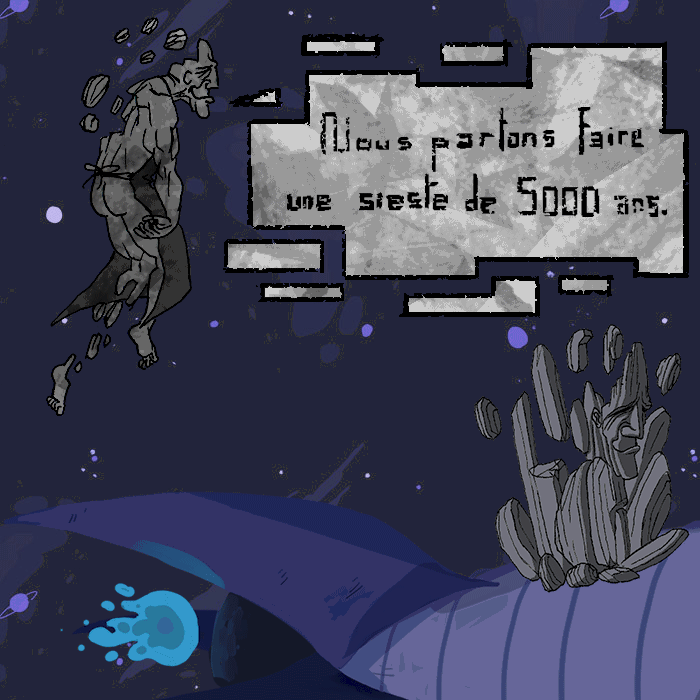 Nous partons faire
une sieste de 5000 ans.